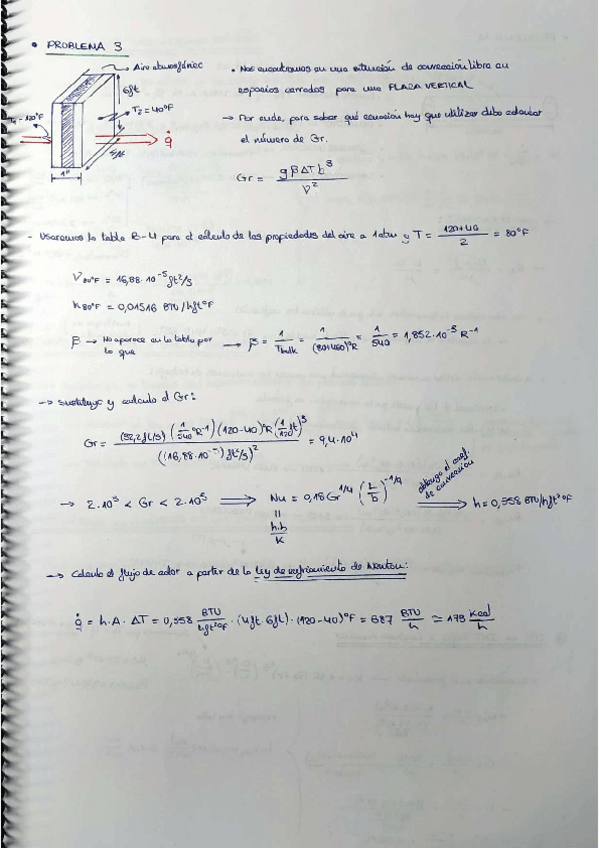 • PROBLEMA 3
Aire atmosférico
6ft
T₁ = 120°F
T₂ = 40°F
q̇
4ft
1"
• Nos encontramos en una situación de convección libre en
espacios cerrados para una PLACA VERTICAL
→ Por ende, para saber qué ecuación hay que utilizar debo calcular
el número de Gr.
Gr = gβΔT b³ / ν²
- Usaremos la tabla B-4 para el cálculo de las propiedades del aire a 1 atm y T = (120+40)/2 = 80°F
ν80°F = 16,88·10⁻⁵ ft²/s
k80°F = 0,01516 BTU/hft°F
β → No aparece en la tabla por lo que → β = 1/Tbulk = 1/(80+460)°R = 1/540 = 1,852·10⁻³ R⁻¹
→ Sustituyo y calculo el Gr:
Gr = (32,2ft/s)(1/540 °R⁻¹)(120-40)°R(1/12 ft)³ / ((16,88·10⁻⁵)ft²/s)² = 9,4·10⁴
→ 2·10⁴ < Gr < 2·10⁵ ⟹ Nu = 0,18Gr^1/4 (L/b)^-1/9 ⟹ h = 0,358 BTU/hft²°F
obtengo el coef. de convección
||
h.b/k
→ Calculo el flujo de calor a partir de la Ley de enfriamiento de Newton:
q̇ = h.A.ΔT = 0,358 BTU/hft²°F · (4ft·6ft)·(120-40)°F = 687 BTU/h ≃ 173 Kcal/h